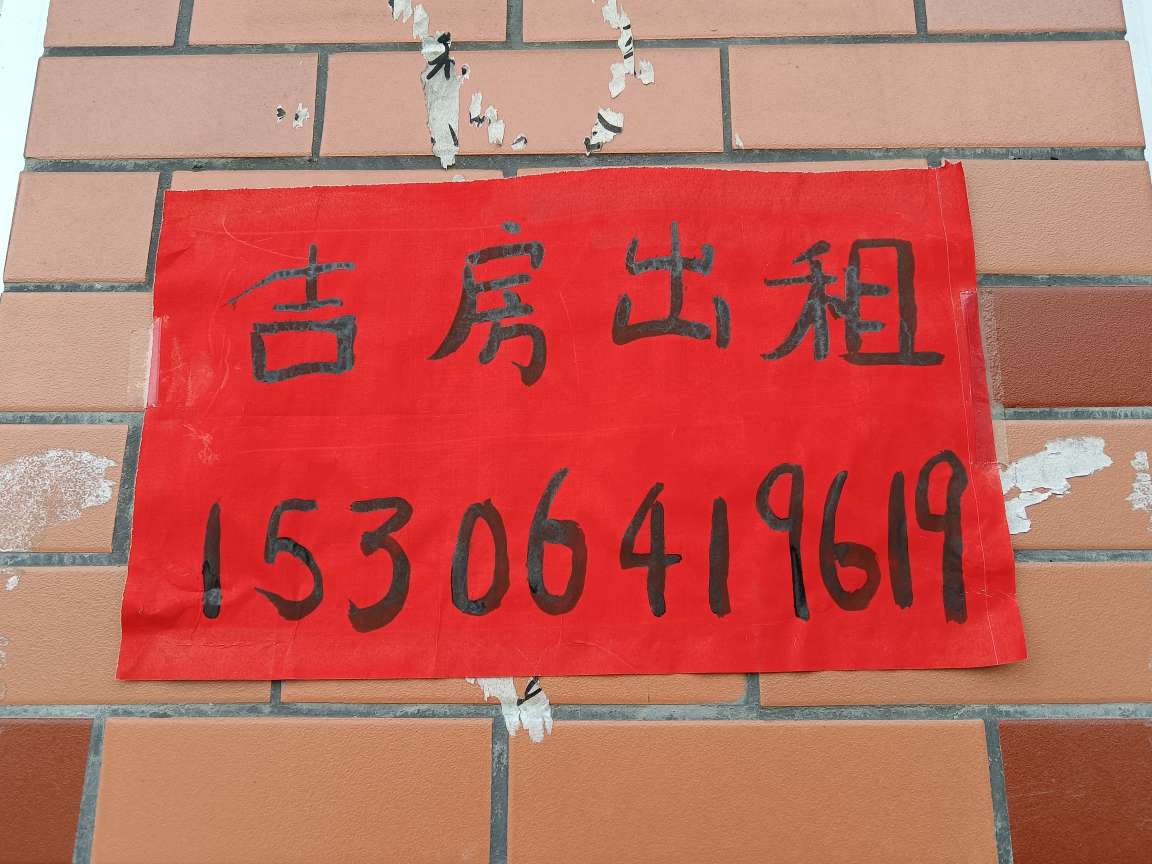 吉房出租
15306419619